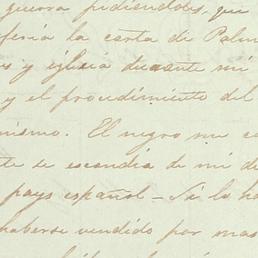 guerra pidiendoles, que
feria la carta de Palm
s y iglesia durante mi
y el procedimiento del
nismo. El negro me co
te se escondia de mi de
pays español - Si lo ha
haberse vendido por mas